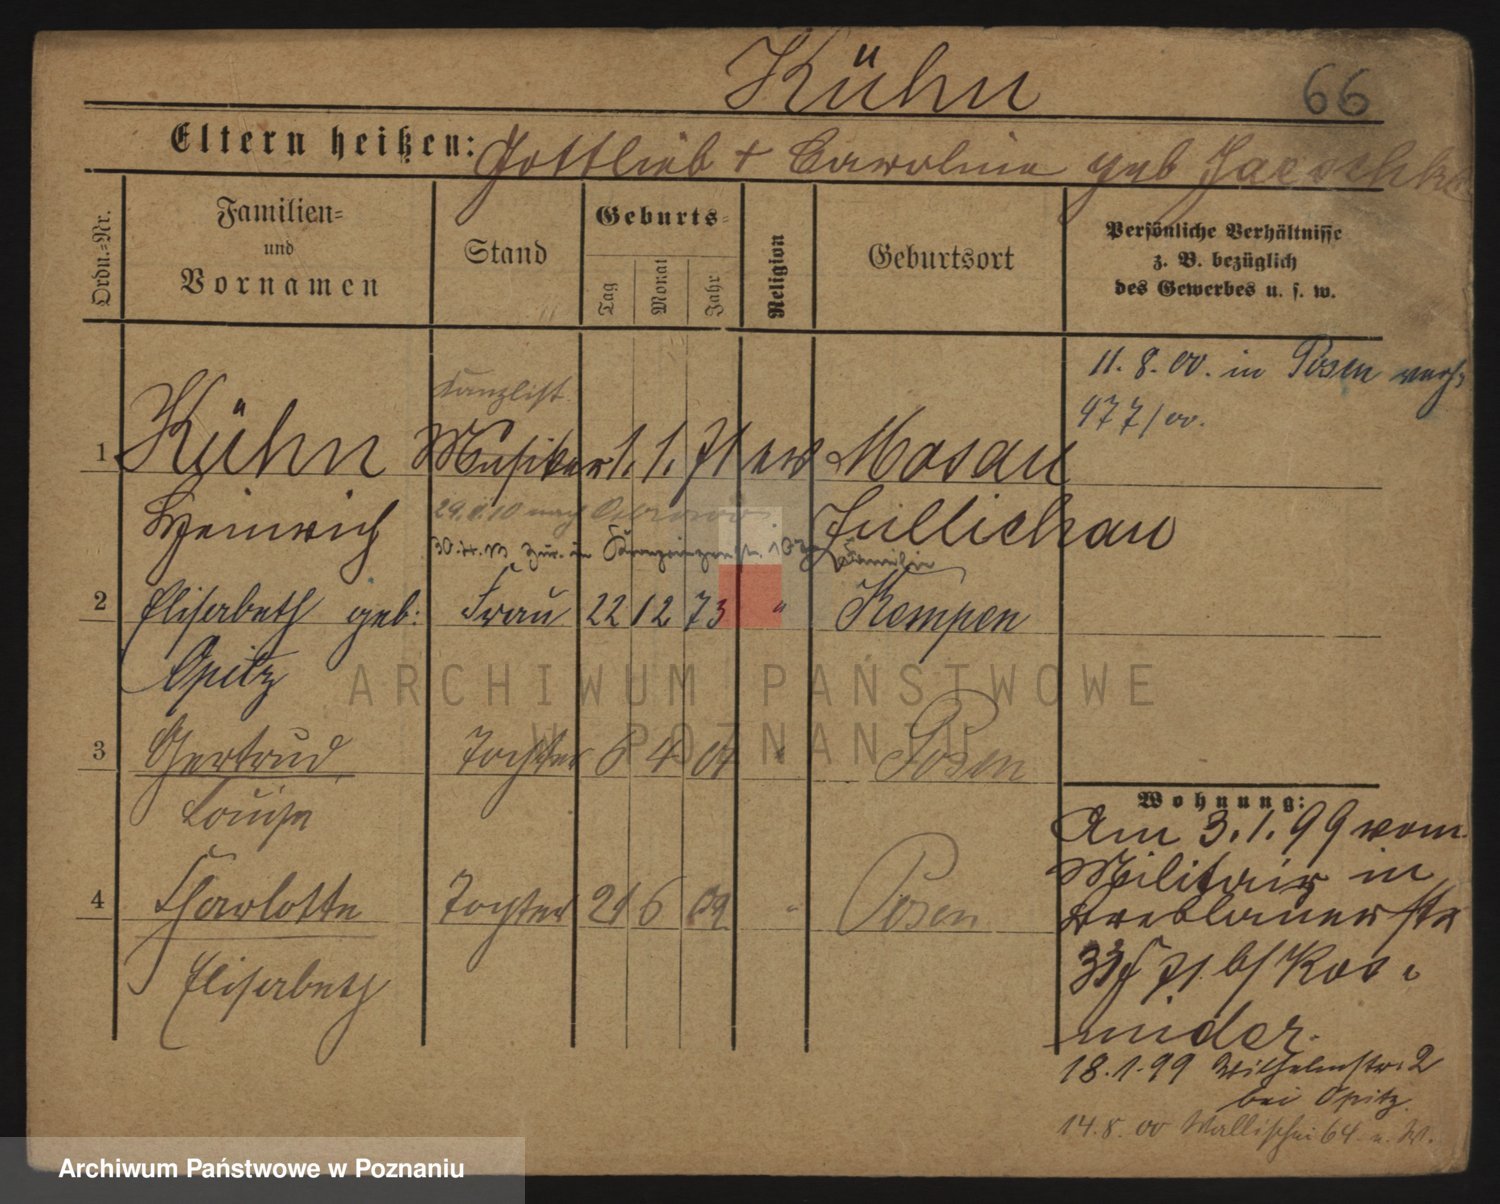 Kühn 66
Eltern heißen: Gottlieb + Caroline geb Jaeschke
Ordn.=Nr.
Familien=
und
Vornamen
Stand
Geburts=
Tag
Monat
Jahr
Religion
Geburtsort
Persönliche Verhältnisse
z. B. bezüglich
des Gewerbes u. s. w.
11. 8. 00. in Posen verh.
477/00.
Kanzlist
1 Kühn Musiker 1. 1. 71 ew Mosau
Heinrich Züllichau
29. 10 nach Ostrowo
Familie
2 Elisabeth geb: Frau 22 12 73 " Kempen
Opitz
3 Gertrud Tochter 6 4 01 " Posen
Louise
4 Charlotte Tochter 21 6 09 " Posen
Elisabeth
Wohnung:
Am 3. 1. 99 vom
Militair in
Breslauerstr
bs/ Kos=
minder.
18. 1. 99 Wilhelmstr. 2
bei Opitz.
14. 8. 00 Wallischei 64 u. W.
ARCHIWUM PAŃSTWOWE
W POZNANIU
Archiwum Państwowe w Poznaniu